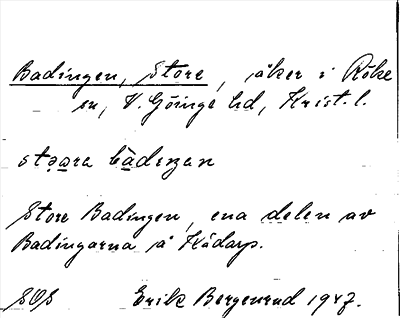 Badingen, Store, åker i Röke
sn, V. Göinge hd, Krist. l.
stǫara bàdeŋan
Store Badingen, ena delen av
Badingarna å Kådarp.
SOS Erik Bergenrud 1947.